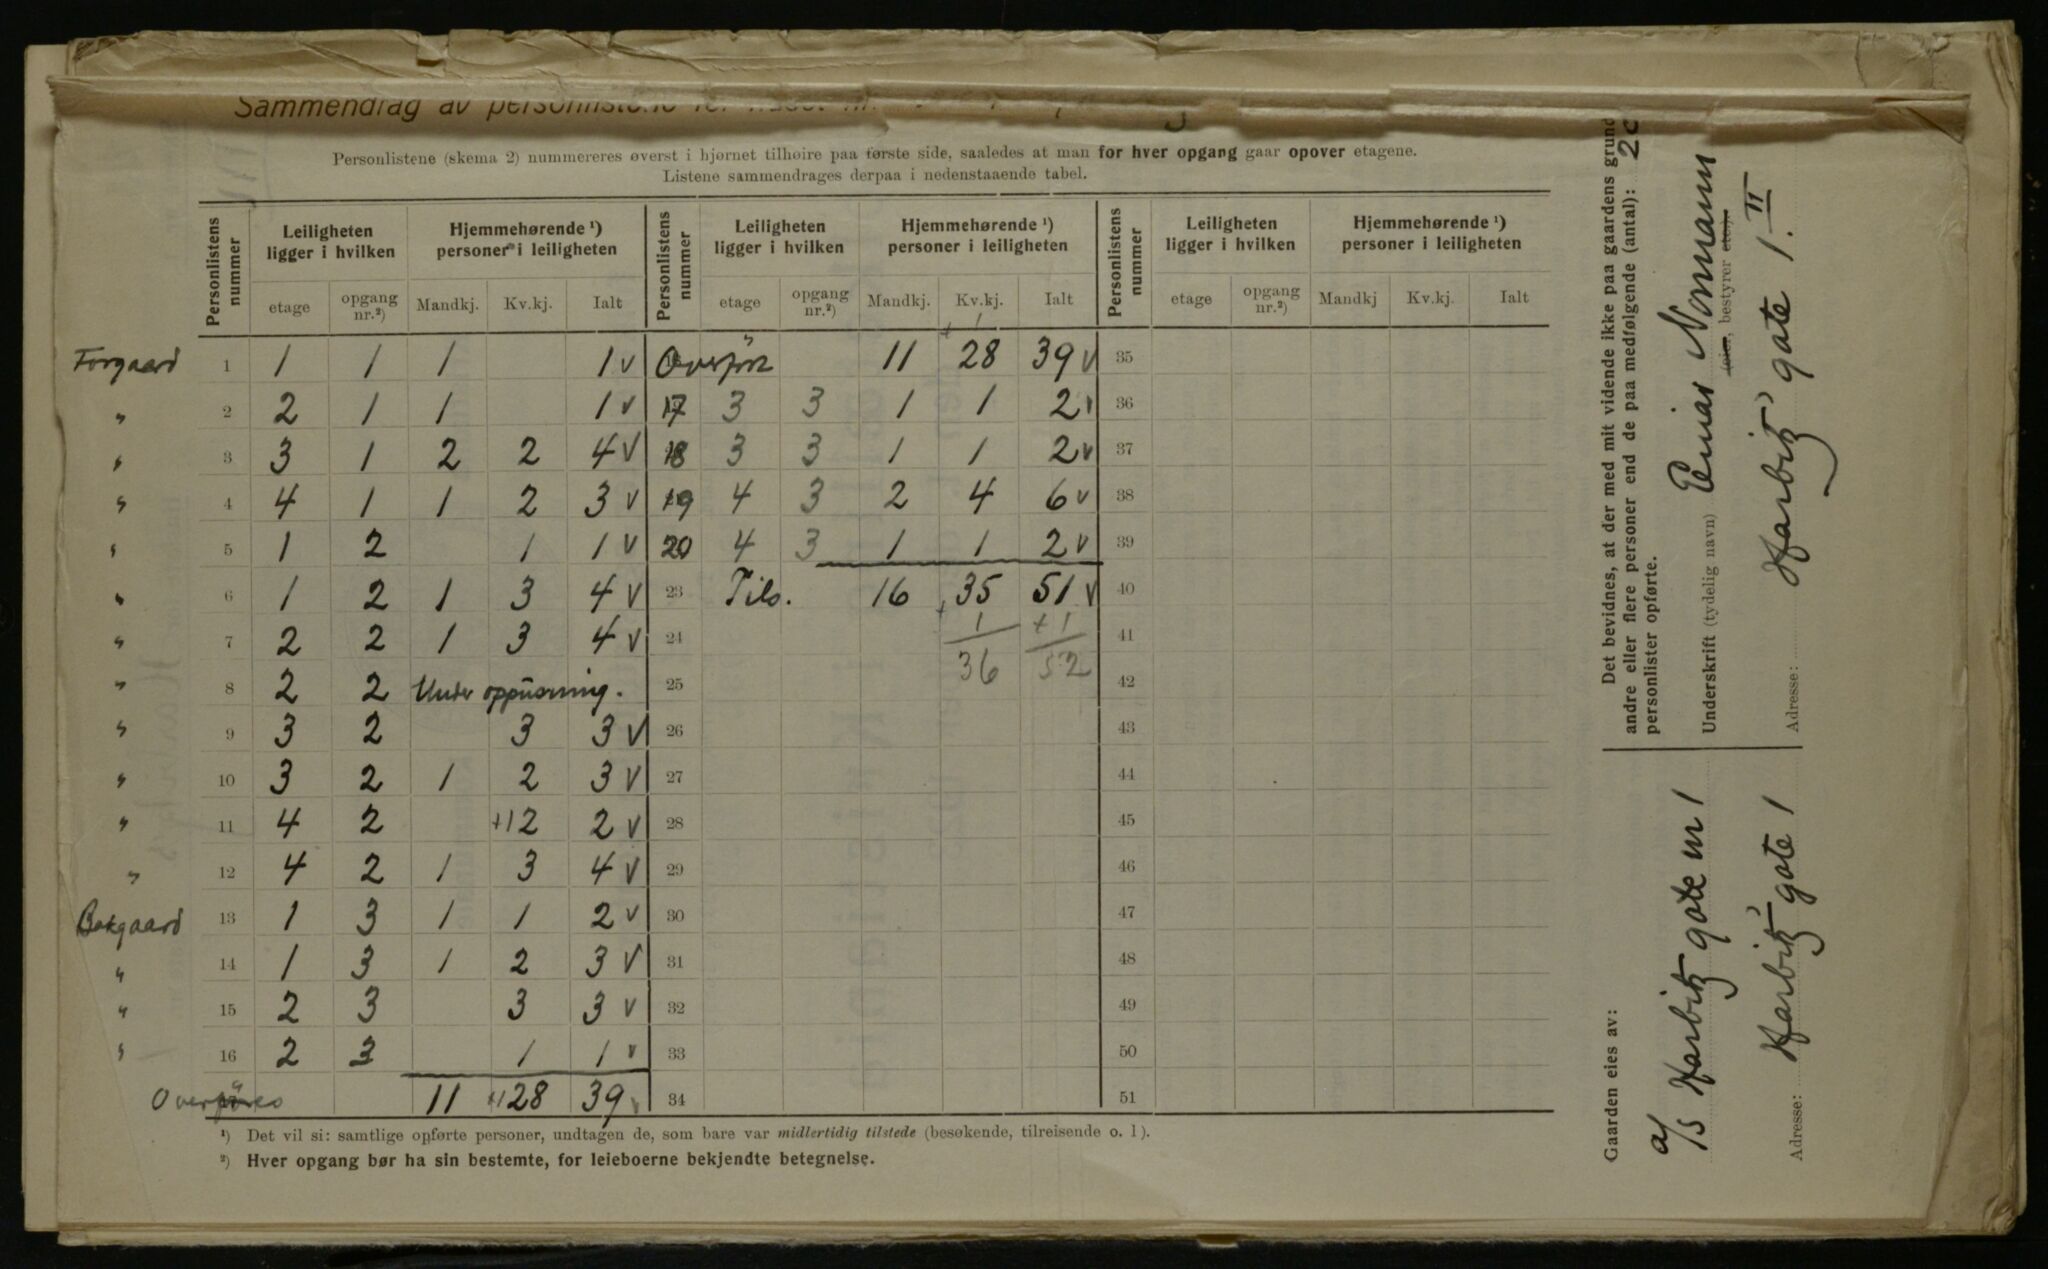 Sammendrag av personlistene
Personlistene (skema 2) nummereres øverst i hjørnet tilhøire paa første side, saaledes at man for hver opgang gaar opover etagene.
Listene sammendrages derpaa i nedenstaaende tabel.
Personlistens nummer | Leiligheten ligger i hvilken | Hjemmehørende ¹) personer i leiligheten | Personlistens nummer | Leiligheten ligger i hvilken | Hjemmehørende ¹) personer i leiligheten | Personlistens nummer | Leiligheten ligger i hvilken | Hjemmehørende ¹) personer i leiligheten
etage | opgang nr.²) | Mandkj. | Kv.kj. | Ialt | etage | opgang nr.²) | Mandkj. | Kv.kj. | Ialt | etage | opgang nr.²) | Mandkj | Kv.kj. | Ialt
+ 1
Forgaard 1 | 1 | 1 | 1 | | 1 v | Overført | | 11 | 28 | 39 v | 35
" 2 | 2 | 1 | 1 | | 1 v | 17 | 3 | 3 | 1 | 1 | 2 v | 36
" 3 | 3 | 1 | 2 | 2 | 4 v | 18 | 3 | 3 | 1 | 1 | 2 v | 37
" 4 | 4 | 1 | 1 | 2 | 3 v | 19 | 4 | 3 | 2 | 4 | 6 v | 38
" 5 | 1 | 2 | | 1 | 1 v | 20 | 4 | 3 | 1 | 1 | 2 v | 39
" 6 | 1 | 2 | 1 | 3 | 4 v | 23 | Tils. | | 16 | 35 | 51 v | 40
" 7 | 2 | 2 | 1 | 3 | 4 v | 24 | | | | + 1 | + 1 | 41
" 8 | 2 | 2 | Under oppusning. | 25 | | | | 36 | 52 | 42
" 9 | 3 | 2 | | 3 | 3 v | 26 | 43
" 10 | 3 | 2 | 1 | 2 | 3 v | 27 | 44
" 11 | 4 | 2 | | +1 2 | 2 v | 28 | 45
" 12 | 4 | 2 | 1 | 3 | 4 v | 29 | 46
Bakgaard 13 | 1 | 3 | 1 | 1 | 2 v | 30 | 47
" 14 | 1 | 3 | 1 | 2 | 3 v | 31 | 48
" 15 | 2 | 3 | | 3 | 3 v | 32 | 49
" 16 | 2 | 3 | | 1 | 1 v | 33 | 50
Overføres | | | 11 | +1 28 | 39 v | 34 | 51
¹) Det vil si: samtlige opførte personer, undtagen de, som bare var midlertidig tilstede (besøkende, tilreisende o. l).
²) Hver opgang bør ha sin bestemte, for leieboerne bekjendte betegnelse.
Gaarden eies av:
A/S Harbitz gate nr 1
Adresse: Harbitz' gate 1
Det bevidnes, at der med mit vidende ikke paa gaardens grund
andre eller flere personer end de paa medfølgende (antal):
personlister opførte.
Underskrift (tydelig navn) Normann
(eier, bestyrer etc).
Adresse: Harbitz' gate 1. II